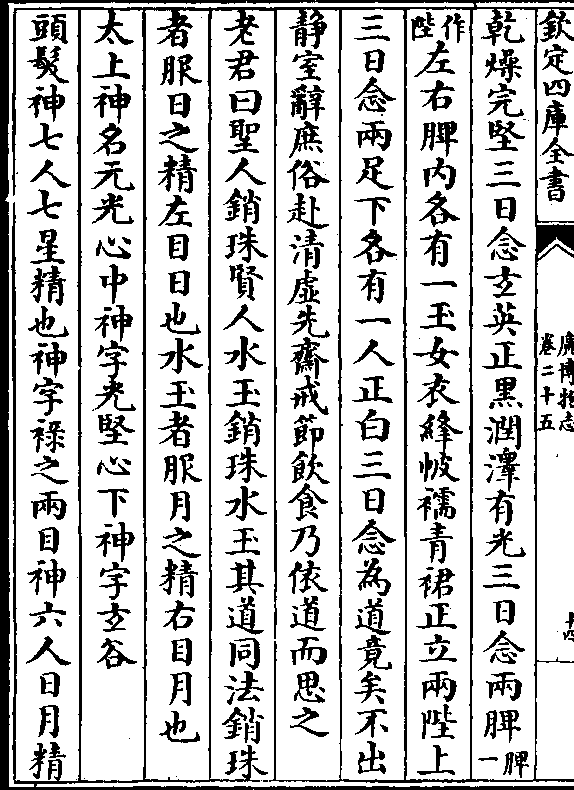 欽定四庫全書
廣博物志
卷二十五
十四
乾燥完堅三日念玄英正黑潤澤有光三日念兩脾一脾
作陛左右脾内各有一玉女衣絳帔襦青裙正立兩陛上
三日念兩足下各有一人正白三日念為道竟矣不出
静室辭庶俗赴清虛先齋戒節飲食乃依道而思之
老君曰聖人銷珠賢人水玉銷珠水玉其道同法銷珠
者服日之精左目日也水玉者服月之精右目月也
太上神名元光心中神字光堅心下神字玄谷
頭髮神七人七星精也神字祿之兩目神六人日月精